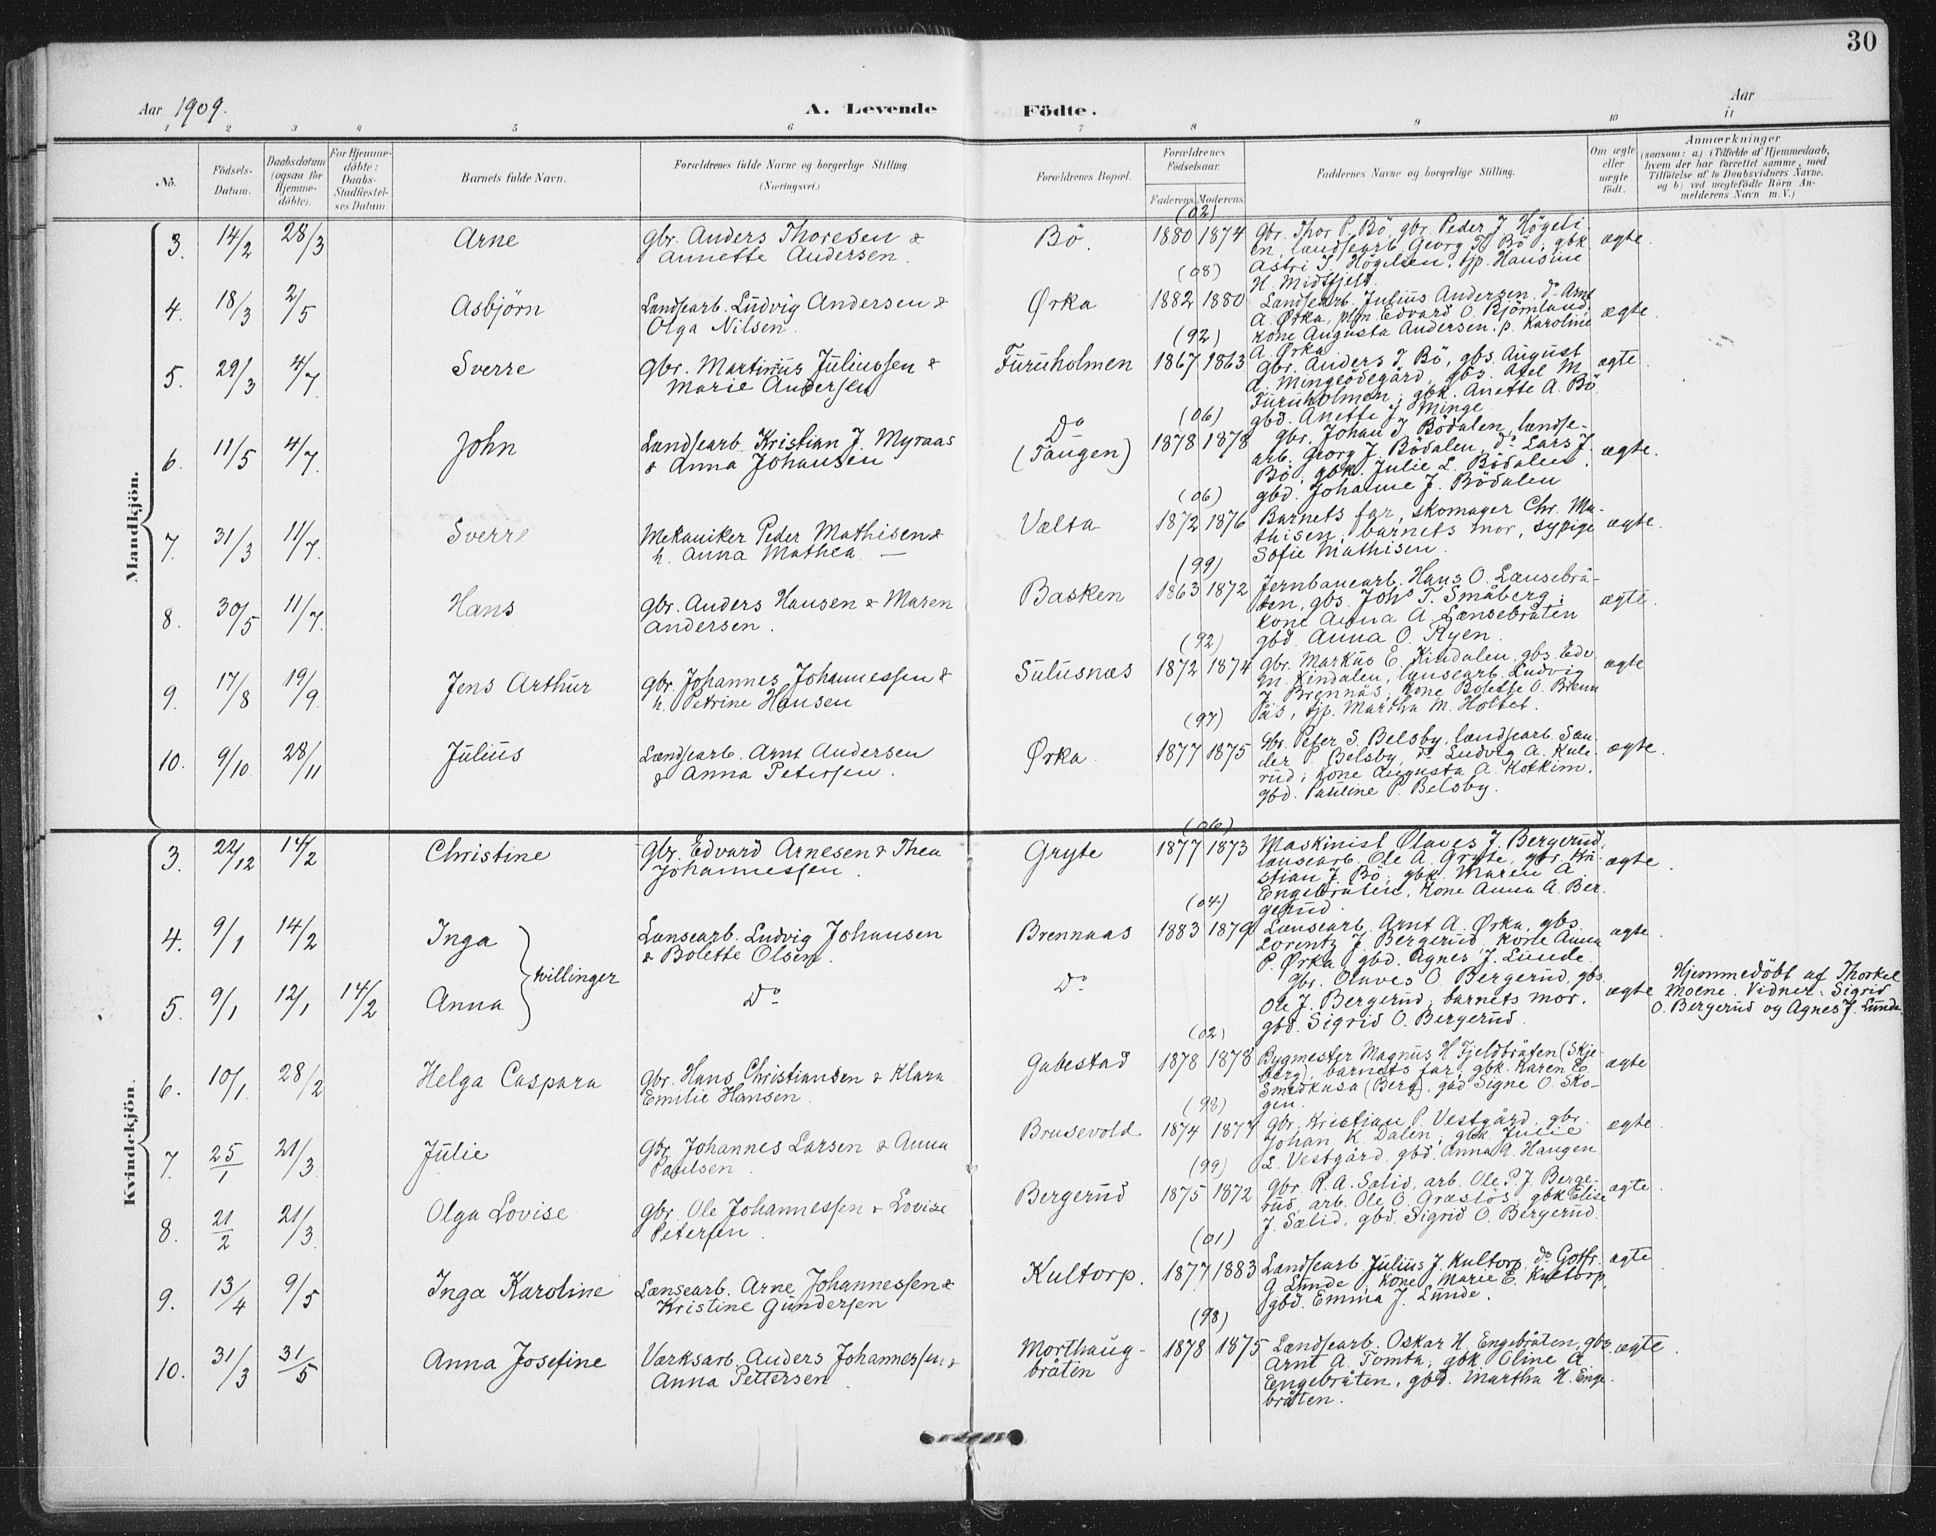 30
Aar 1909. A. Levende Födte. Aar
1 2 3 4 5 6 7 8 9 10 11
No.
Födsels-
Datum.
Daabsdatum
(ogsaa for
Hjemme-
döbte).
For Hjemme-
döbte:
Daabs-
Stadfæstel-
ses Datum.
Barnets fulde Navn.
Forældrenes fulde Navne og borgerlige Stilling.
(Næringsvei.)
Forældrenes Bopæl.
Forældrenes
Födselsaar.
Faderens. Moderens.
Faddernes Navne og borgerlige Stilling.
Om ægte
eller
uægte
født.
Anmærkninger
(saasom: a) i Tilfælde af Hjemmedaab,
hvem der har forrettet samme, med
Tilföielse af to Daabsvidners Navne,
og b) ved uegtefödte Börn An-
melderens Navn m. V.)
Mandkjön.
3. 14/2 28/3 Arne
Gbr. Anders Thoresen &
Annette Andersen.
Bö.
(02)
1880 1874
Gbr. Thor P. Bö, gbr. Peder J. Högeli
en, landsearb. Georg Bö, gbk.
Astri J. Högelien, tjp. Hansine
H. Midtfjeld.
ægte.
4. 18/3 2/5 Asbjörn
Landsearb. Ludvig Andersen &
Olga Nilsen.
Ørka
(08)
1882 1880
Landsearb. Julius Andersen, do Arnt
A. Ørka, Edvard O. Björnland,
kone Augusta Andersen, p. Karoline
A. Ørka
ægte.
5. 29/3 4/7 Sverre
Gbr. Martinius Juliussen &
Marie Andersen
Furuholmen
(92)
1867 1863
Gbr. Anders J. Bö, gbs. August
A. Mingeödegård, gbs. Axel M.
Furuholmen, gbk. Anette A. Bö
gbd. Anette J. Minge
ægte
6. 11/5 4/7 John
Landsearb. Kristian J. Myraas
& Anna Johansen
Do
(Taugen)
(06)
1878 1878
Gbr. Johan J. Bödalen, landse-
arb. Georg J. Bödalen, do Lars J.
Bö, gbk. Julie L. Bödalen,
gbd. Johanne J. Bödalen
ægte.
7. 31/3 11/7 Sverre
Mekaniker Peder Mathisen &
h. Anna Mathea —
Valta
(06)
1872 1876
Barnets far, skomager Chr. Ma-
thisen, barnets mor, sypige
Sofie Mathisen.
ægte.
8. 30/5 11/7 Hans
Gbr. Anders Hansen & Maren
Andersen.
Basken
(99)
1863 1872
Jernbanearb. Hans O. Lænsebrå-
ten, gbs. Johs T. Småberg;
kone Anna A. Lænsebråten
gbd. Anna O. Ryen.
ægte.
9. 17/8 19/9 Jens Arthur
Gbr. Johannes Johannessen &
h. Petrine Hansen
Sulusnæs
(92)
1872 1874
Gbr. Markus E. Kindalen, gbs. Edv.
M. Kindalen, lænsearb. Ludvig
J. Brennäs, kone Bolette O. Brenn
äs, tjp. Martha M. Holtet.
ægte
10. 9/10 28/11 Julius
Landsearb. Arnt Andersen
& Anna Petersen.
Ørka.
(97)
1877 1875
Gbr. Peter S. Belsby, landsearb. San-
der P. Belsby, do Ludvig A. Kule-
rud; kone Augusta A. Kotkim,
gbd. Pauline P. Belsby.
ægte.
Kvindekjön.
3. 22/12 14/2 Christine
Gbr. Edvard Arnesen & Thea
Johannessen.
Gryte
(06)
1877 1873
Maskinist Olaves J. Bergerud,
lænsearb. Ole A. Gryte, gbr. Kri-
stian J. Bö; gbk. Maren A.
Engebråten, kone Anna A. Ber-
gerud.
ægte.
4. 9/1 14/2 Inga
twillinger
Lænsearb. Ludvig Johansen
& Bolette Olsen.
Brennaas
(04)
1883 1879
Lænsearb. Arnt A. Ørka, gbs.
Lorentz J. Bergerud, kone Anna
P. Ørka, gbd. Agnes J. Lunde.
ægte.
5. 9/1 12/1 14/2 Anna
Do
Do
Gbr. Olaves O. Bergerud, gbs.
Ole J. Bergerud; barnets mor,
gbd. Sigrid O. Bergerud.
ægte
Hjemmedöbt af Thorkel
Moene. Vidner: Sigrid
O. Bergerud og Agnes J. Lunde.
6. 10/1 28/2 Helga Caspara
Gbr. Hans Christiansen & Klara
Emilie Hansen.
Gabestad
(02)
1878 1878
Bygmester Magnus H. Fjeldbråten (Skje-
berg), barnets far, gbk. Karen E.
Smedkasa (Berg), gbd. Signe O. Sko-
gen.
ægte
7. 25/1 21/3 Julie
Gbr. Johannes Larsen & Anna
Paulsen.
Brusevold
(98)
1874 1877
Gbr. Kristian P. Vestgård, gbr.
Johan K. Dalen; gbk. Julie
L. Vestgård, gbd. Anna A. Haugen
ægte
8. 21/2 21/3 Olga Lovise
Gbr. Ole Johannessen & Lovise
Petersen.
Bergerud
(99)
1875 1872
Gbr. R. A. Solid, arb. Ole P. J. Berge-
rud, arb. Ole O. Græslös, gbk. Elise
J. Sælid, gbd. Sigrid O. Bergerud.
ægte.
9. 13/4 9/5 Inga Karoline
Lænsearb. Arne Johannessen &
Kristine Gundersen
Kultorp.
(01)
1877 1883
Landsearb. Julius J. Kultorp, do Gotfr.
G. Lunde, kone Marie E. Kultorp,
gbd. Emma J. Lunde.
ægte
10. 31/3 31/5 Anna Josefine
Værksarb. Anders Johannessen &
Anna Pettersen.
Morthaug-
bråten
(98)
1878 1875
Landsearb. Oskar H. Engebråten, gbr.
Arnt A. Tomta, gbk. Oline A.
Engebråten, gbd. Martha H. Enge-
bråten.
ægte.